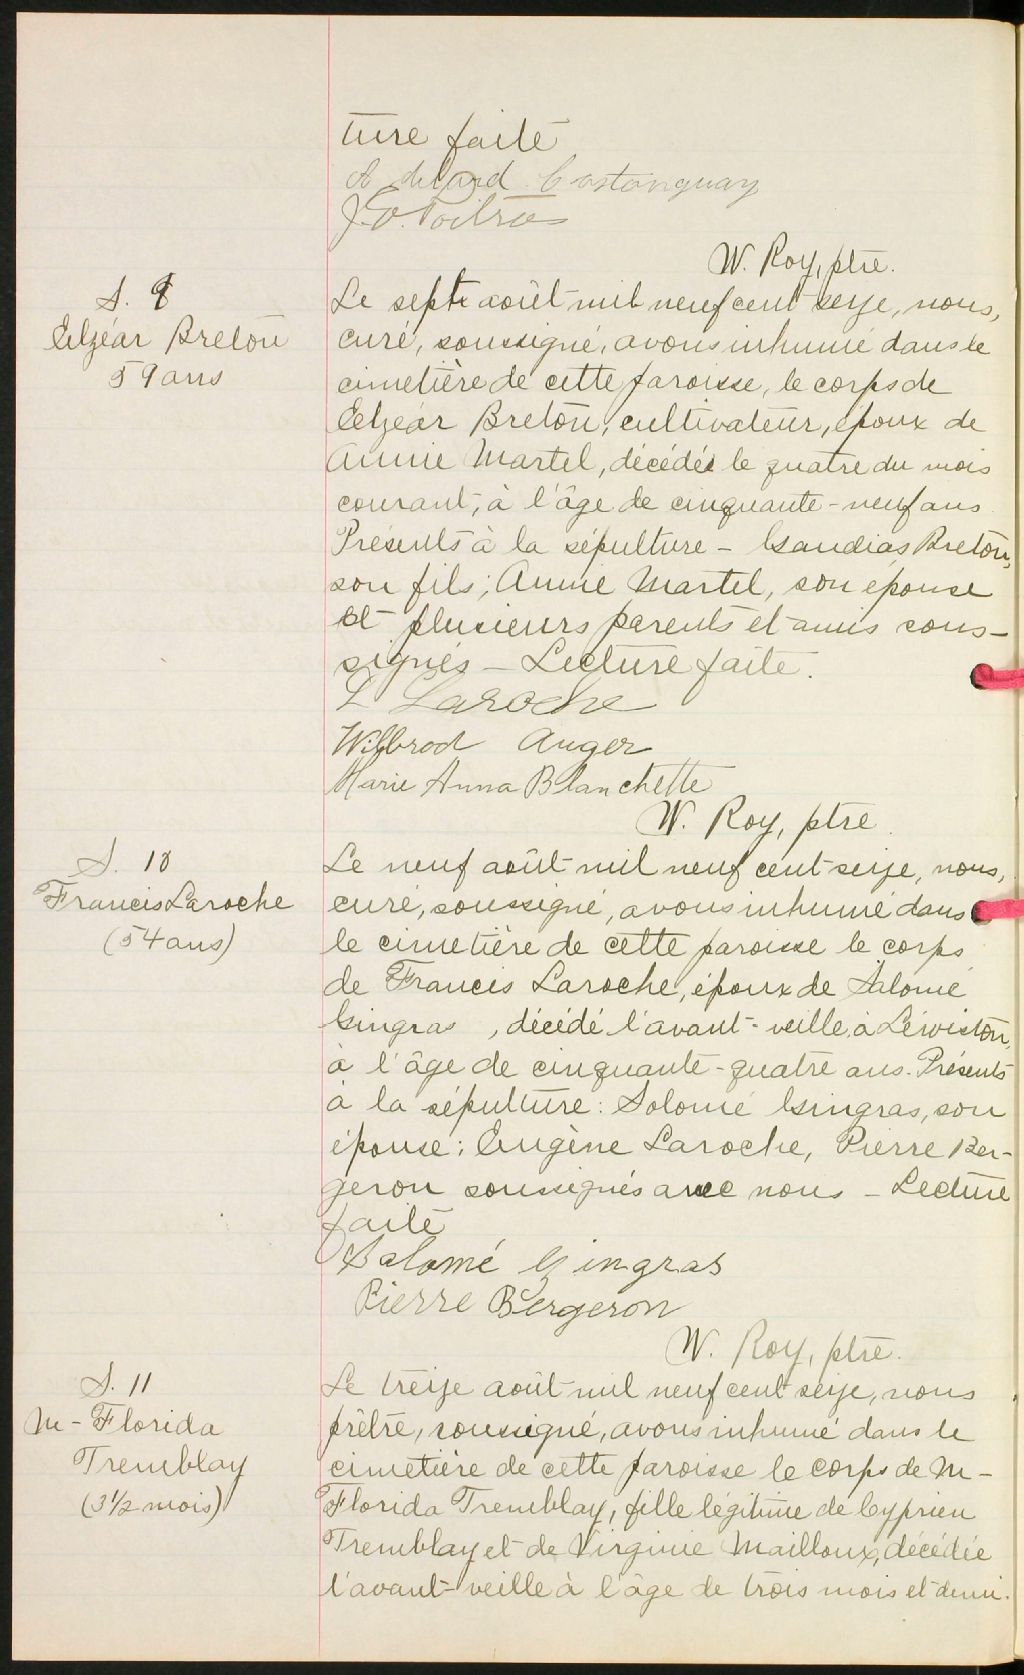 ture faite
Adélard Castonguay
J. O. Poitras
W. Roy, ptre.
S. 9
Elzéar Breton
59 ans
Le sept août mil neuf cent seize, nous,
curé, soussigné, avons inhumé dans le
cimetière de cette paroisse, le corps de
Elzéar Breton, cultivateur, époux de
Annie Martel, décédé le quatre du mois
courant, à l'âge de cinquante-neuf ans
Présents à la sépulture - Gaudias Breton,
son fils; Annie Martel, son épouse
et plusieurs parents et amis sous-
signés - Lecture faite.
L Laroche
Wilbrod Auger
Marie Anna Blanchette
W. Roy, ptre.
S. 10
Francis Laroche
(54 ans)
Le neuf août mil neuf cent seize, nous,
curé, soussigné, avons inhumé dans
le cimetière de cette paroisse le corps
de Francis Laroche, époux de Salomé
Gingras, décédé l'avant-veille, à Léwiston,
à l'âge de cinquante-quatre ans. Présents
à la sépulture: Salomé Gingras, son
épouse; Eugène Laroche, Pierre Ber-
geron soussignés avec nous - Lecture
faite
Salomé Gingras
Pierre Bergeron
W. Roy, ptre.
S. 11
M-Florida
Tremblay
(3 1/2 mois)
Le treize août mil neuf cent seize, nous
prêtre, soussigné, avons inhumé dans le
cimetière de cette paroisse le corps de M-
Florida Tremblay, fille légitime de Cyprien
Tremblay et de Virginie Mailloux, décédée
l'avant-veille à l'âge de trois mois et demi.